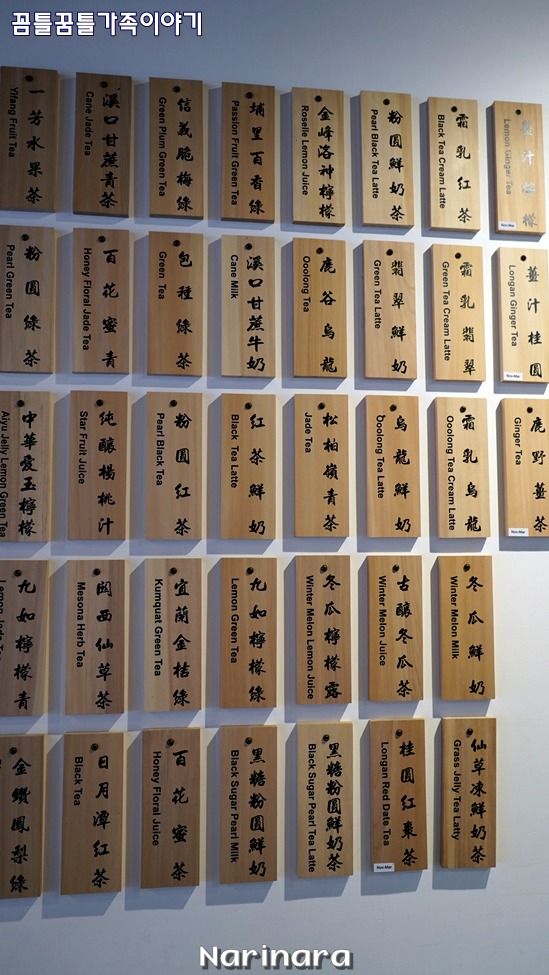 꼼틀꿈틀가족이야기
一芳水果茶
Yifang Fruit Tea
溪口甘蔗青茶
Cane Jade Tea
信義脆梅綠
Green Plum Green Tea
埔里百香綠
Passion Fruit Green Tea
金峰洛神檸檬
Roselle Lemon Juice
粉圓鮮奶茶
Pearl Black Tea Latte
霜乳紅茶
Black Tea Cream Latte
薑汁檸檬
Lemon Ginger Tea
Nov-Mar
粉圓綠茶
Pearl Green Tea
百花蜜青
Honey Floral Jade Tea
包種綠茶
Green Tea
溪口甘蔗牛奶
Cane Milk
鹿谷烏龍
Ooolong Tea
翡翠鮮奶
Green Tea Latte
霜乳翡翠
Green Tea Cream Latte
薑汁桂圓
Longan Ginger Tea
Nov-Mar
中華愛玉檸檬
Aiyu Jelly Lemon Green Tea
純釀楊桃汁
Star Fruit Juice
粉圓紅茶
Pearl Black Tea
紅茶鮮奶
Black Tea Latte
松柏嶺青茶
Jade Tea
烏龍鮮奶
Ooolong Tea Latte
霜乳烏龍
Ooolong Tea Cream Latte
鹿野薑茶
Ginger Tea
Nov-Mar
九如檸檬青
Lemon Jade Tea
關西仙草茶
Mesona Herb Tea
宜蘭金桔綠
Kumquat Green Tea
九如檸檬綠
Lemon Green Tea
冬瓜檸檬露
Winter Melon Lemon Juice
古釀冬瓜茶
Winter Melon Juice
冬瓜鮮奶
Winter Melon Milk
金鑽鳳梨綠
日月潭紅茶
Black Tea
百花蜜茶
Honey Floral Juice
黑糖粉圓鮮奶
Black Sugar Pearl Milk
黑糖粉圓鮮奶茶
Black Sugar Pearl Tea Latte
桂圓紅棗茶
Longan Red Date Tea
Nov-Mar
仙草凍鮮奶茶
Grass Jelly Tea Latty
Narinara